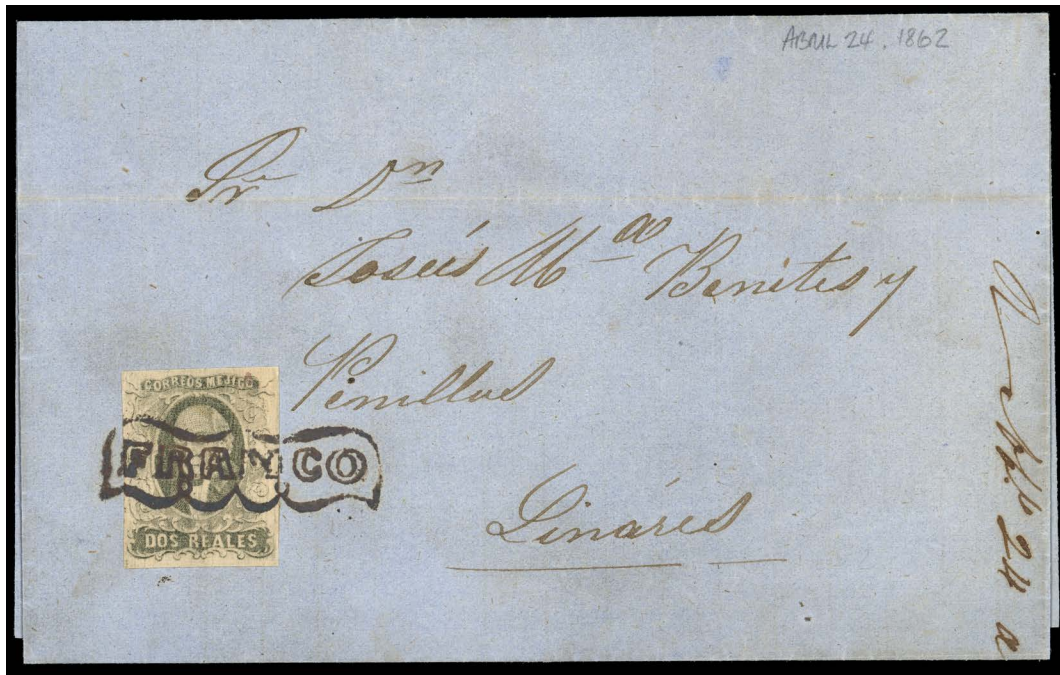 ABRIL 24. 1862
Sr Dn
Jesús Ma Benites y
Pinillos
Linares
CORREOS MEJICO
FRANCO
DOS REALES
24